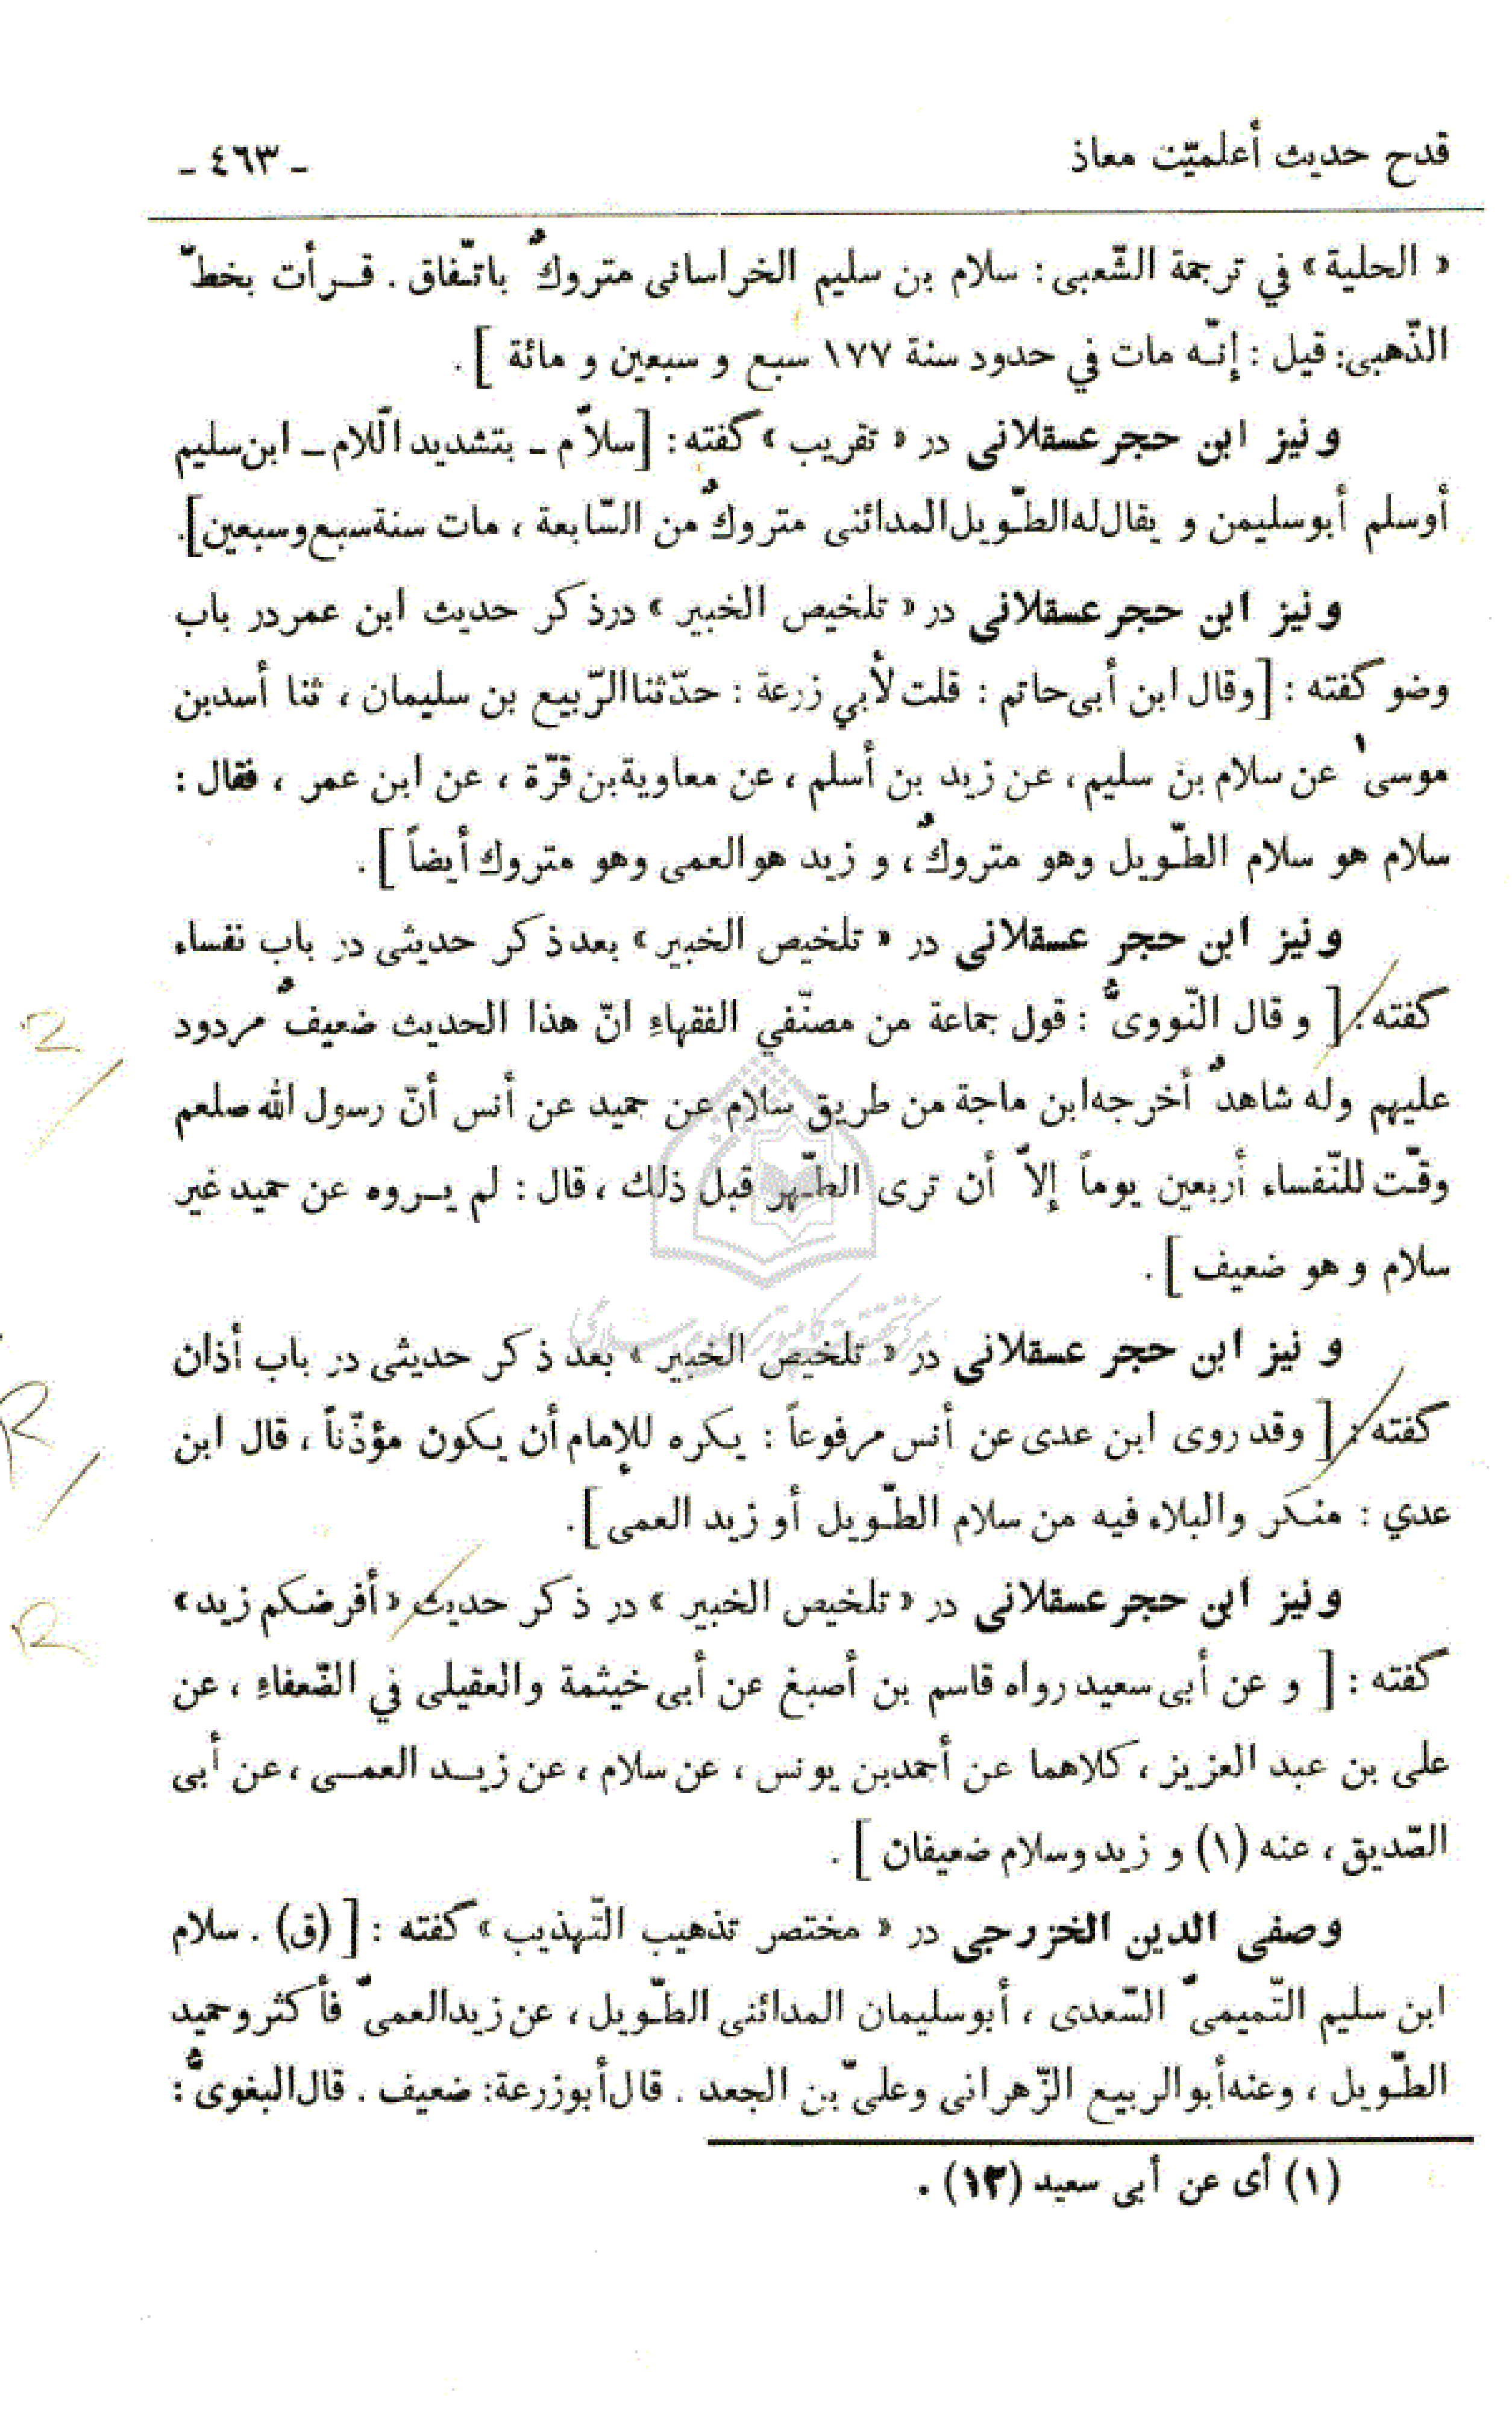 قدح حديث أعلميّت معاذ
- ٤٦٣ -
« الحلية » في ترجمة الشّعبى : سلام بن سليم الخراسانى متروكٌ باتّفاق . قرأت بخطّ
الذّهبى: قيل : إنّه مات في حدود سنة ١٧٧ سبع و سبعين و مائة ] .
و نيز ابن حجر عسقلانى در « تقريب » كفته : [ سلاّم ـ بتشديد الّلام ـ ابن سليم
أوسلم أبوسليمن و يقال له الطّويل المدائنى متروكٌ من السّابعة ، مات سنة سبع و سبعين ].
و نيز ابن حجر عسقلانى در « تلخيص الخبير » درذكر حديث ابن عمر در باب
وضو كفته : [ وقال ابن أبى حاتم : قلت لأبي زرعة : حدّثنا الرّبيع بن سليمان ، ثنا أسدبن
موسى' عن سلام بن سليم ، عن زيد بن أسلم ، عن معاوية بن قرّة ، عن ابن عمر ، فقال :
سلام هو سلام الطّويل وهو متروكٌ ، و زيد هو العمى وهو متروك أيضاً ] .
و نيز ابن حجر عسقلانى در « تلخيص الخبير » بعد ذكر حديثى در باب نفساء
كفته : [ و قال النّووىُّ : قول جماعة من مصنّفي الفقهاءِ انّ هذا الحديث ضعيفٌ مردود
عليهم وله شاهدٌ أخرجه ابن ماجة من طريق سلام عن حميد عن أنس أنّ رسول الله صلعم
وقّت للنّفساء أربعين يوماً إلاّ أن ترى الطّهر قبل ذلك ، قال : لم يروه عن حميد غير
سلام و هو ضعيف ] .
و نيز ابن حجر عسقلانى در « تلخيص الخبير » بعد ذكر حديثى در باب أذان
كفته : [ وقد روى ابن عدى عن أنس مرفوعاً : يكره للإمام أن يكون مؤذّناً ، قال ابن
عدي : منكر والبلاء فيه من سلام الطّويل أو زيد العمى ] .
و نيز ابن حجر عسقلانى در « تلخيص الخبير » در ذكر حديث « أفرضكم زيد »
كفته : [ و عن أبى سعيد رواه قاسم بن أصبغ عن أبى خيثمة والعقيلى في الضّعفاءِ ، عن
على بن عبد العزيز ، كلاهما عن أحمدبن يونس ، عن سلام ، عن زيد العمى ، عن أبى
الصّديق ، عنه (١) و زيد وسلام ضعيفان ] .
وصفى الدين الخزرجى در « مختصر تذهيب التّهذيب » كفته : [ (ق) . سلام
ابن سليم التّميمىّ السّعدى ، أبوسليمان المدائنى الطّويل ، عن زيد العمىّ فأكثر وحميد
الطّويل ، وعنه أبو الربيع الزّهرانى وعلىّ بن الجعد . قال أبوزرعة: ضعيف . قال البغوىُّ :
(١) أى عن أبى سعيد (١٣) .
مركز تحقيقات كامپيوترى علوم اسلامى